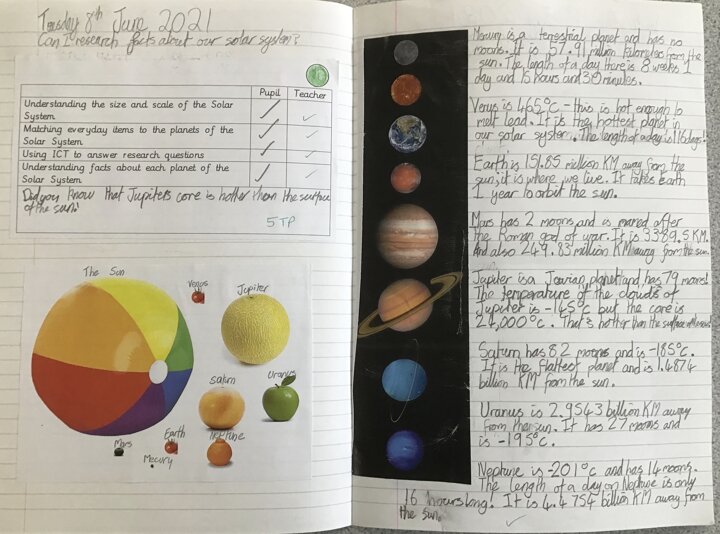 Tuesday 8th June 2021
Can I research facts about our solar system?
Pupil Teacher
Understanding the size and scale of the Solar
System
Matching everyday items to the planets of the
Solar System.
Using ICT to answer research questions
Understanding facts about each planet of the
Solar System
Did you know that Jupiters core is hotter than the surface
of the sun!
5 TP
The Sun
Venus
Jupiter
Saturn
Uranus
Mars
Earth
Neptune
Mecury
Mercury is a terrestrial planet and has no
moons. It is 57.91 million kilometers from the
sun. The length of a day there is 8 weeks 1
day and 15 hours and 30 minutes.
Venus is 465°C - this is hot enough to
melt lead. It is the hottest planet in
our solar system. The length of a day is 116 days!
Earth is 151.85 million KM away from the
sun; it is where we live. It takes Earth
1 year to orbit the sun.
Mars has 2 moons and is named after
the Roman god of war. It is 3389.5 KM
and also 249.83 million KM away from the sun.
Jupiter is a Jovian planet and has 79 moons!
The temperature of the clouds of
Jupiter is -145°C but the core is
24,000°C. That's hotter than the surface of the sun!
Saturn has 82 moons and is -185°C.
It is the flattest planet and is 1.4874
billion KM from the sun.
Uranus is 2.9543 billion KM away
from the sun. It has 27 moons and
is -195°C.
Neptune is -201°C and has 14 moons.
The length of a day on Neptune is only
16 hours long! It is 4.4754 billion KM away from
the sun.